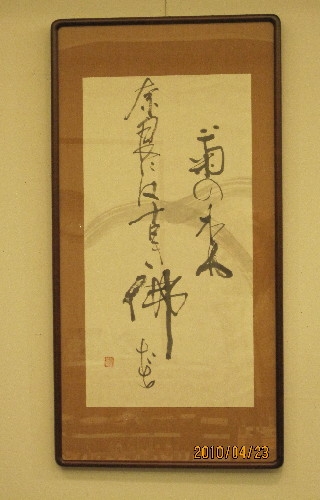 菊の香や
奈良には古き佛たち
2010/04/23